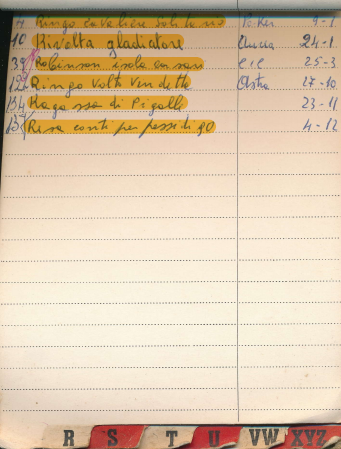 7 Ringo cavaliere solitario Poker 9-1
10 Rivolta gladiatore Lucia 24-1
39 Robinson isola corsari CIC 25-3
Ringo volto vendetta Astra 27-10
134 Ragazza di Pigalle 23-11
Risa conti per pesse di 90 4-12
R S T U VW XYZ